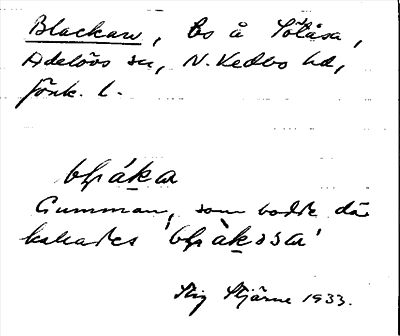 Blackan, bs å Sölåsa,
Adelövs sn, N. Vedbo hd,
Jönk. l.
blɑ́ka
Gumman, som bodde där
kallades
Stig Stjärne 1933.